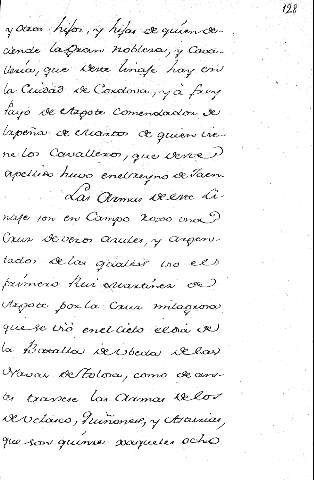 128
y otros hijos, y hijas de quien de-
ciende la Gran nobleza, y Cava-
lleria, que deste linaje hay en
la Ciudad de Cordova, y à fray
Payo de Argote Comendador de
la peña de Martos de quien vie-
ne los Cavalleros, que deste
apellido huvo en el reyno de Jaen.
Las Armas de este Li-
naje son en Campo roxo una
Cruz de veros azules, y argen-
tados de las quales usò el
primero Rui Martinez de
Argote por la Cruz milagrosa
que se viò en el cielo el dia de
la Batalla de Ubeda de las
Navas de Tolosa, como de an-
tes traxese las Armas de los
de Velasco, Quiñones, y
que son quince xaqueles ocho